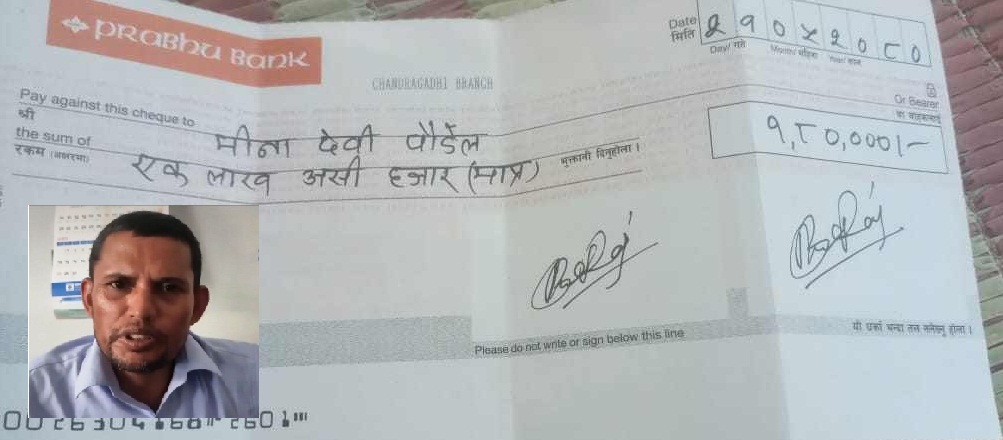 PRABHU BANK
CHANDRAGADHI BRANCH
Date
मिति
२ १ ० ४ २ ० ८ ०
Day/ गते Month/ महिना Year/ साल
Pay against this cheque to
श्री
मीना देवी पौडेल
Or Bearer
वा वाहकलाई
the sum of
रकम (अक्षरमा)
एक लाख असी हजार (मात्र)
भुक्तानी दिनुहोला ।
१,८०,०००/-
Please do not write or sign below this line